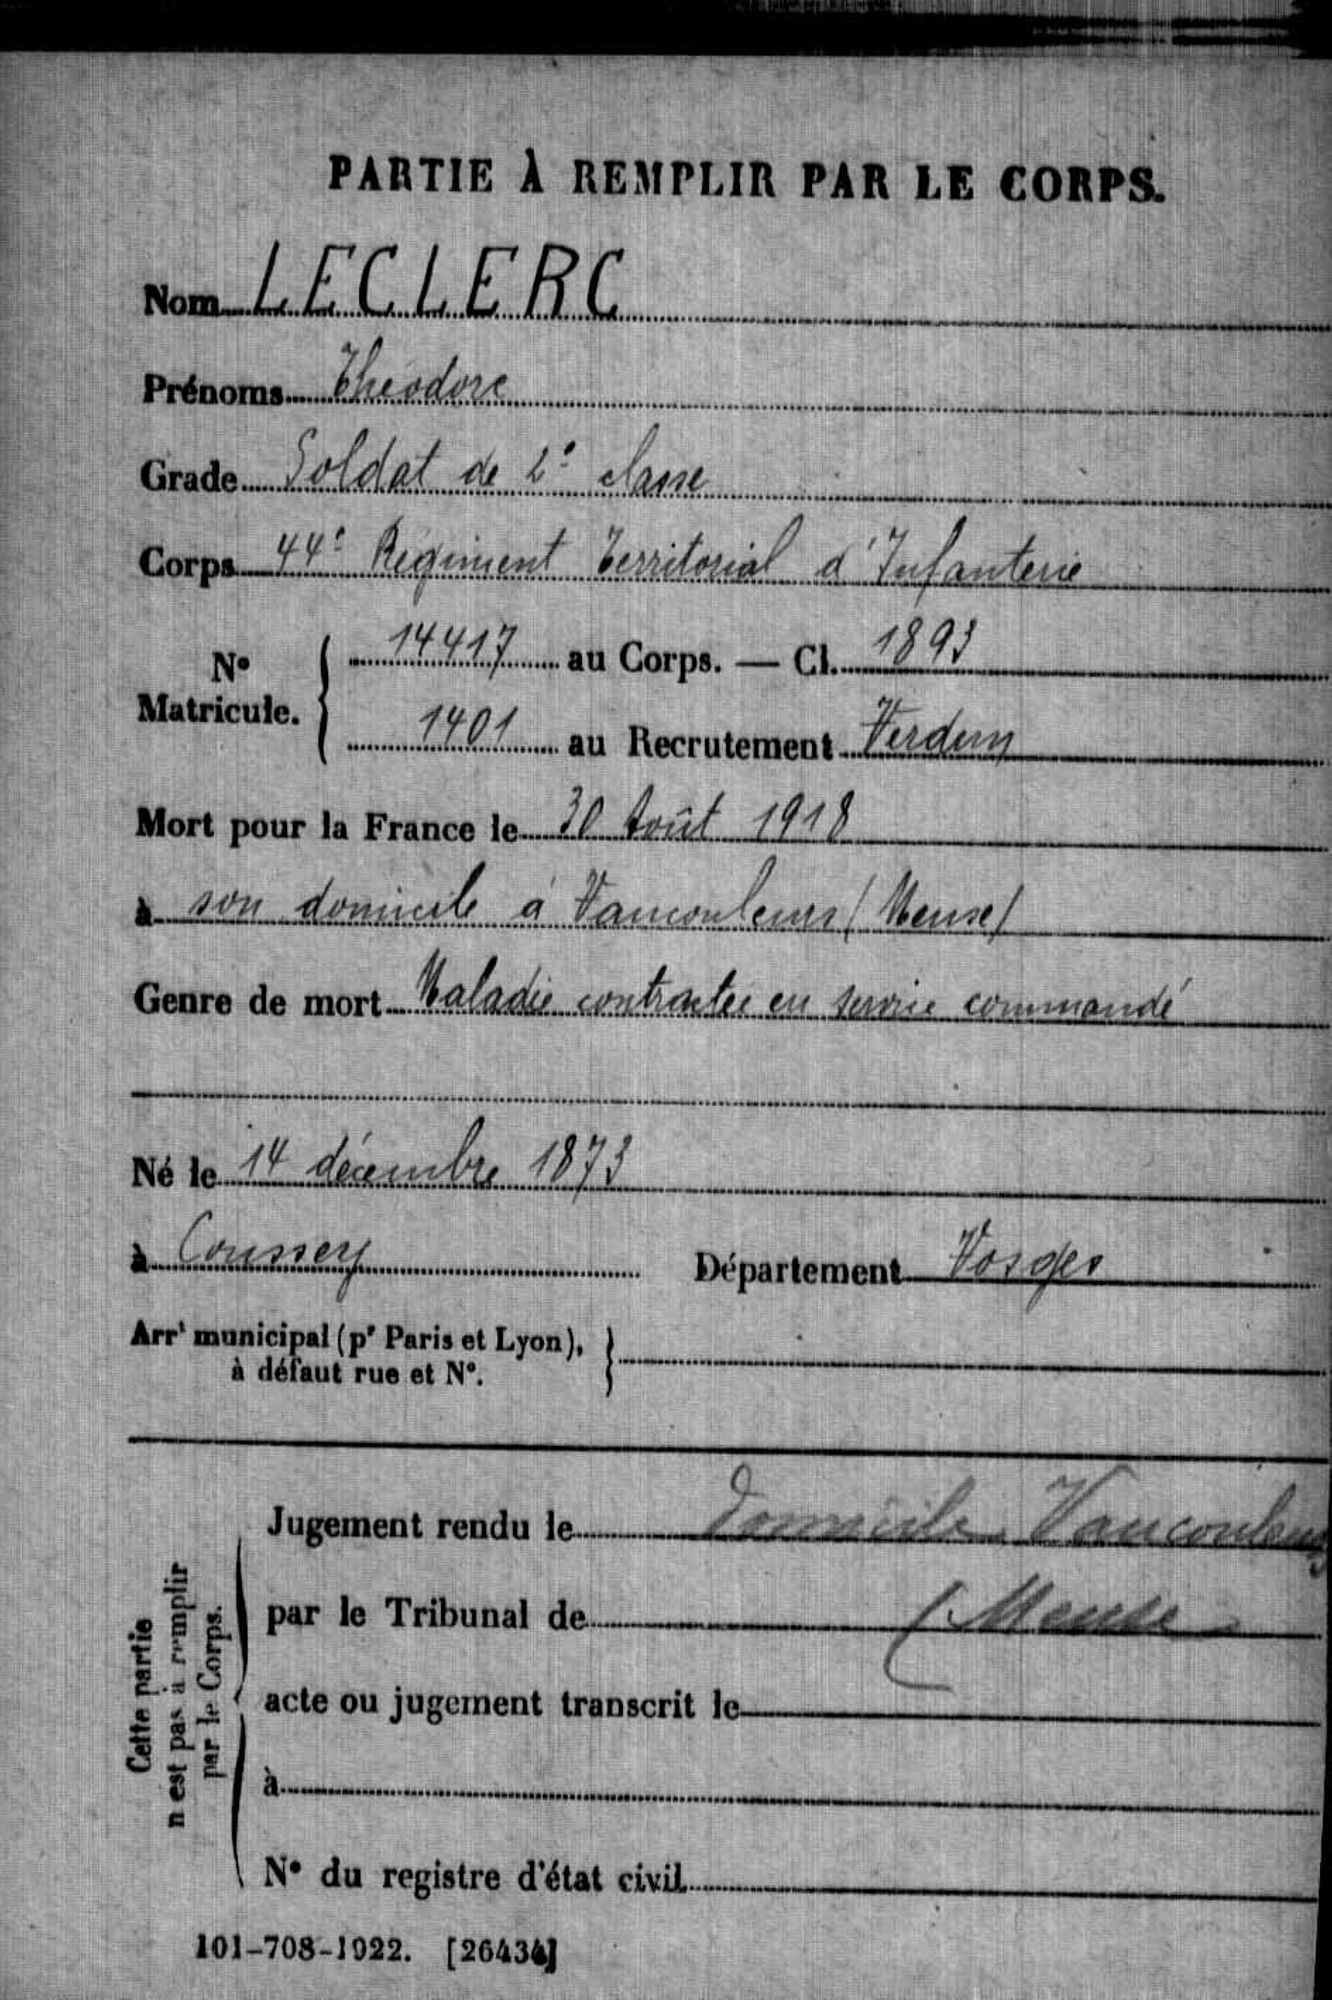 PARTIE À REMPLIR PAR LE CORPS.
Nom LECLERC
Prénoms Théodore
Grade Soldat de 2e classe
Corps 44e Régiment Territorial d'Infanterie
N° Matricule. { 14417 au Corps. — Cl. 1893
1401 au Recrutement Verdun
Mort pour la France le 30 Août 1918
à son domicile à Vaucouleurs (Meuse)
Genre de mort Maladie contractée en service commandé
Né le 14 décembre 1873
à Coussey Département Vosges
Arrt municipal (pr Paris et Lyon),
à défaut rue et N°.
Cette partie
n'est pas à remplir
par le Corps.
Jugement rendu le domicile Vaucouleurs
par le Tribunal de (Meuse
acte ou jugement transcrit le
à
N° du registre d'état civil
101-708-1922. [26434]